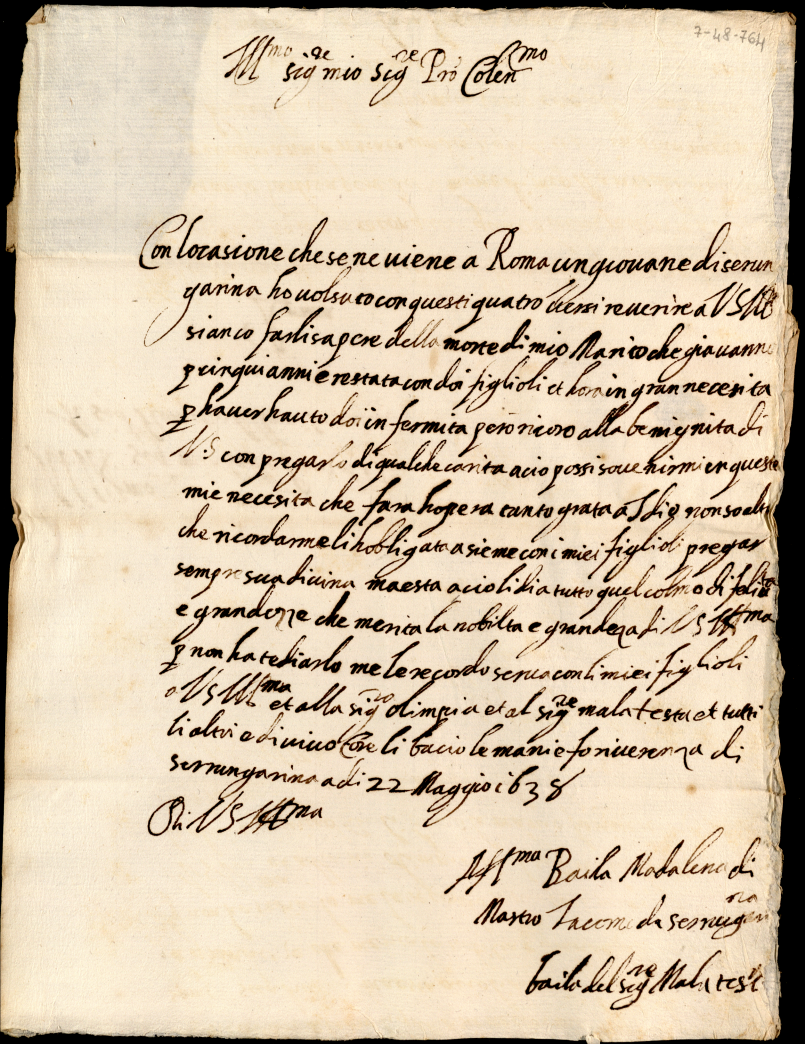 7-48-764
Ill^mo sig^re mio sig^re Pro Colen^mo
Con locasione che se ne viene a Roma un giovane di serun
garina ho volsuto con questi quatro versi reverire a VS Ill
si anco farli sapere della morte di mio Marito che gia vanno
p cinqui anni e restata con doi figlioli et hora in gran necesita
p haver hauto doi in fermita pero ricoro alla benignita di
VS con pregarlo di qualche carita acio possi sovenirmi in queste
mie necesita che fara hopera tanto grata a Idio non so altr
che ricordarmeli hobligata asieme con i miei figlioli pregar
sempre sua divina maesta acio li dia tutto quel colmo di felita
e grandezze che merita la nobilta e grandeza di VS Ill^ma
p non ha tediarlo me le recordo serva con li miei figlioli
a VS Ill^ma et alla sig^ra olimpia et al sig^re malatesta et tutti
li altri e di vivo Core li bacio le mani e fo riverenza di
serrungarina a di 22 Maggio 1638
Di VS Ill^ma
Aff^ma Baila Madalena di
Mastro Iacomo da serrugarina
baila del sig^re Malatest